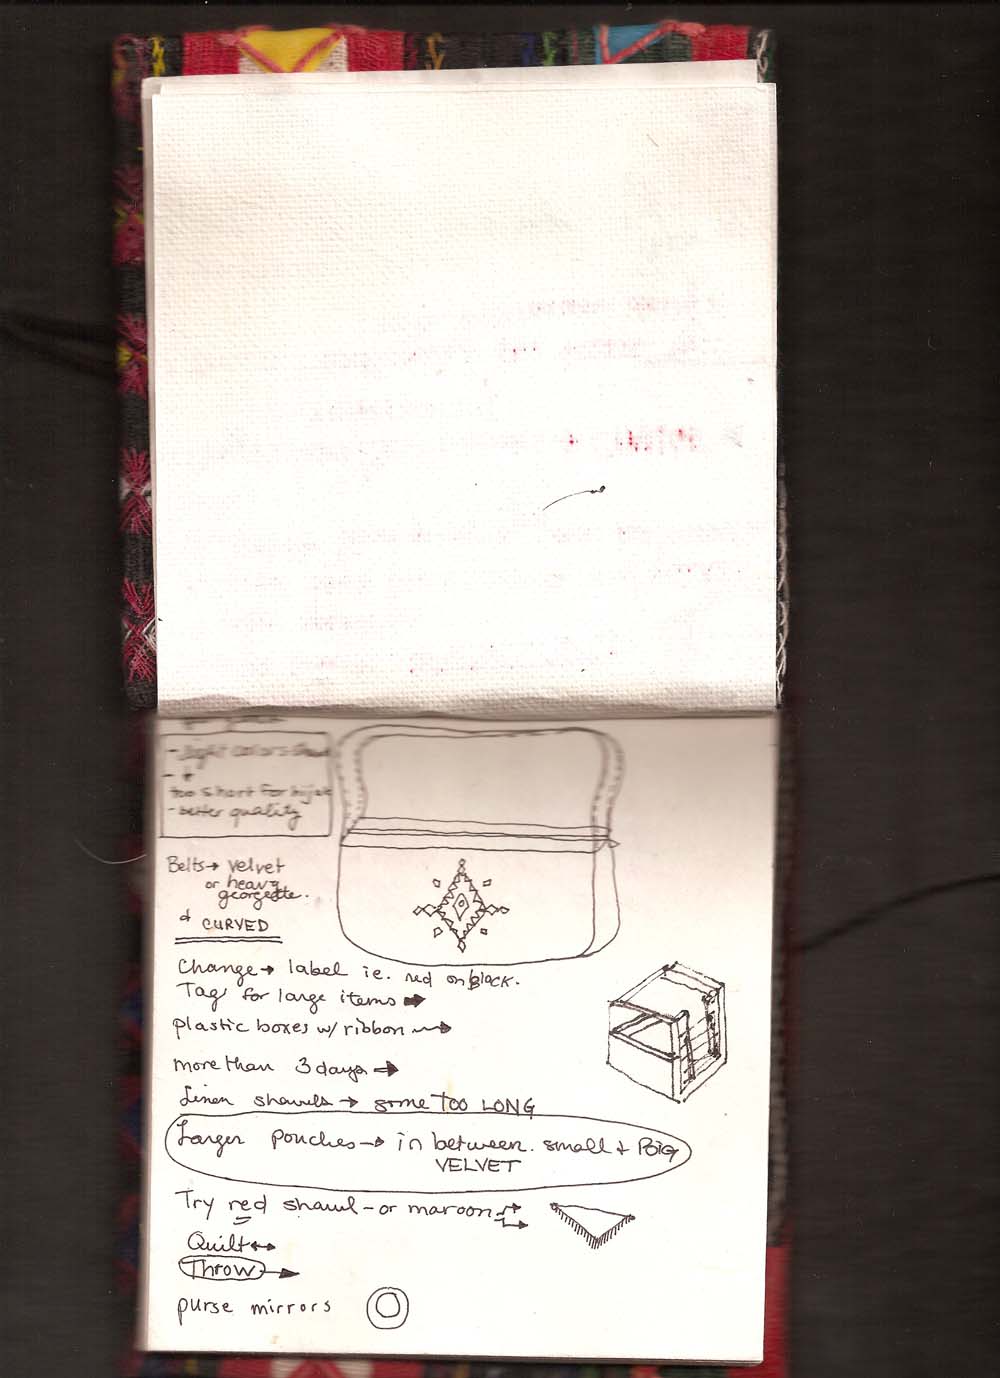 - light colors
- +
too short for hijab
- better quality
Belts → velvet
or heavy
georgette.
& CURVED
Change → label ie. red on black.
Tag for large items →
plastic boxes w/ ribbon →
more than 3 days →
Linen shawls → some TOO LONG
Larger pouches → in between. small + Big
VELVET
Try red shawl - or maroon →
Quilt ↔
Throw →
purse mirrors